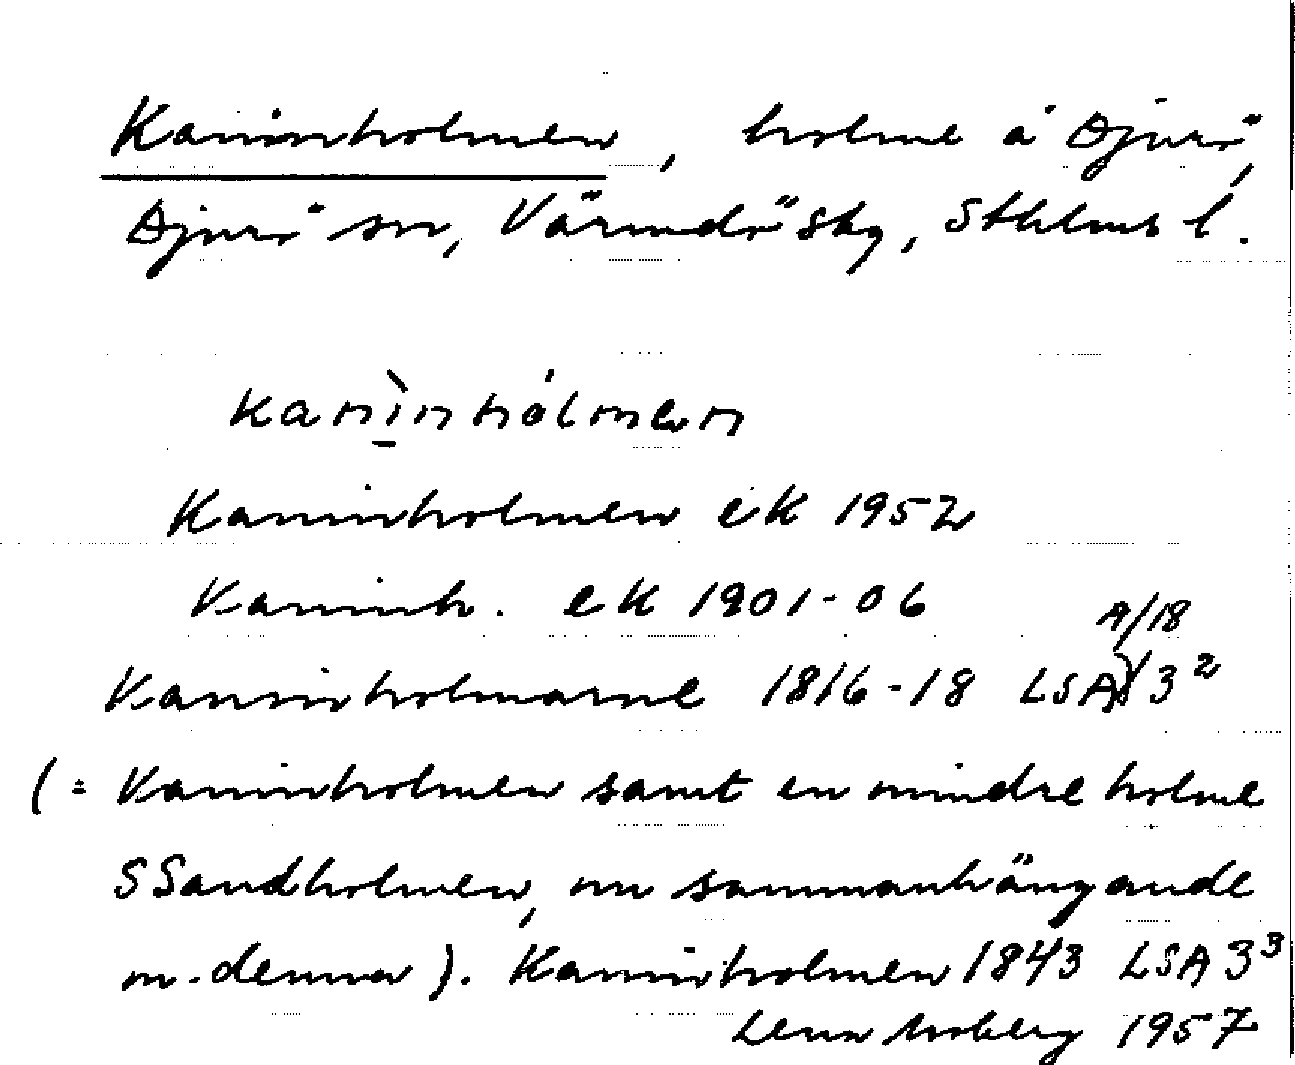 Kaninholmen, holme å Djurö,
Djurö sn, Värmdö sky, Sthlms l.
kanìnhólmen
Kaninholmen ek 1952
Kaninh. ek 1901-06
A/18
Kaninholmarne 1816-18 LSA 3²
(= Kaninholmen samt en mindre holme
S Sandholmen, nu sammanhängande
m. denna). Kaninholmen 1843 LSA 3³
Lena Moberg 1957